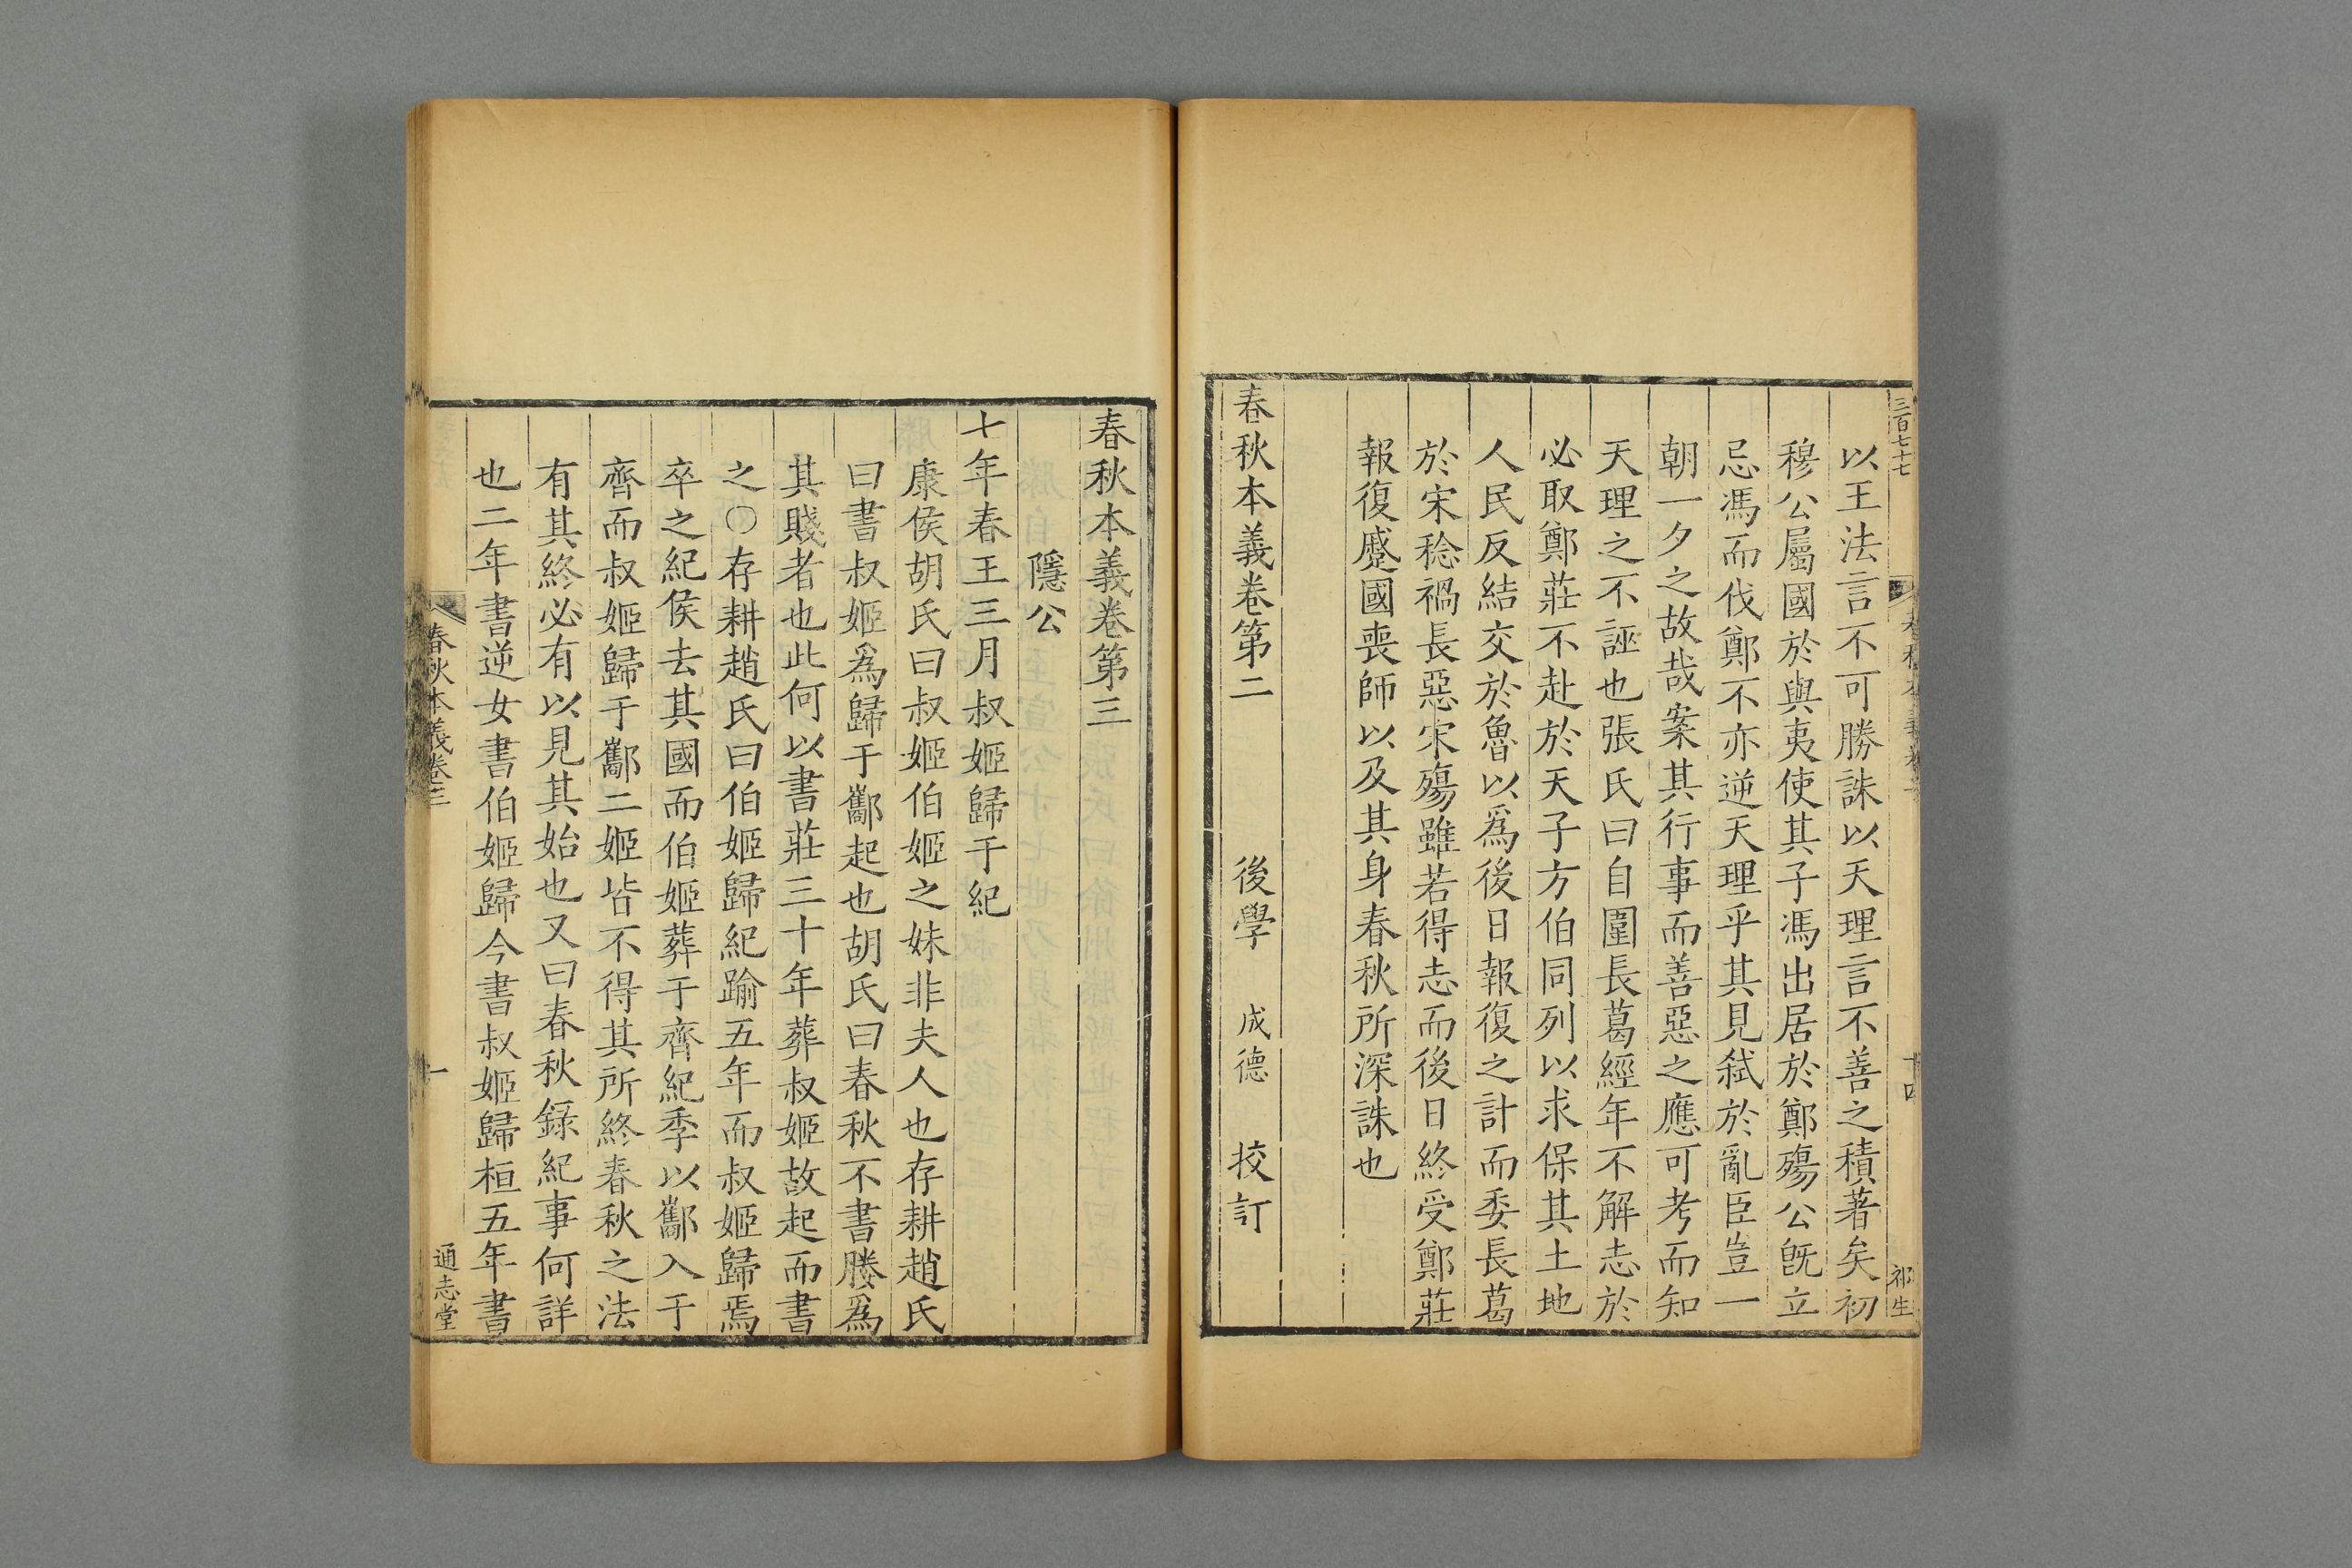 三百七十七
十四
祁生
以王法言不可勝誅以天理言不善之積著矣初
穆公屬國於與夷使其子馮出居於鄭殤公旣立
忌馮而伐鄭不亦逆天理乎其見弑於亂臣豈一
朝一夕之故哉案其行事而善惡之應可考而知
天理之不誣也張氏曰自圍長葛經年不解志於
必取鄭莊不赴於天子方伯同列以求保其土地
人民反結交於魯以爲後日報復之計而委長葛
於宋稔禍長惡宋殤雖若得志而後日終受鄭莊
報復蹙國喪師以及其身春秋所深誅也
春秋本義卷第二 後學 成德 挍訂
春秋本義卷第三
隱公
七年春王三月叔姬歸于紀
康侯胡氏曰叔姬伯姬之妹非夫人也存耕趙氏
曰書叔姬爲歸于酅起也胡氏曰春秋不書媵爲
其賤者也此何以書莊三十年葬叔姬故起而書
之〇存耕趙氏曰伯姬歸紀踰五年而叔姬歸焉
卒之紀侯去其國而伯姬葬于齊紀季以酅入于
齊而叔姬歸于酅二姬皆不得其所終春秋之法
有其終必有以見其始也又曰春秋錄紀事何詳
也二年書逆女書伯姬歸今書叔姬歸桓五年書
春秋本義卷三
一
通志堂